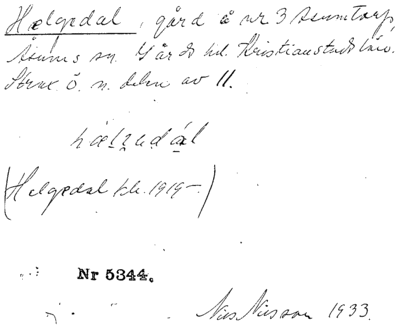 Helgedal, gård å nr 3 Sumtorp
Åsums sn. Gärds hd. Kristianstads län.
Strax ö. n. delen av 11.
(Helgedal kh. 1919-)
Nr 5344.
Nils Nilsson 1933.